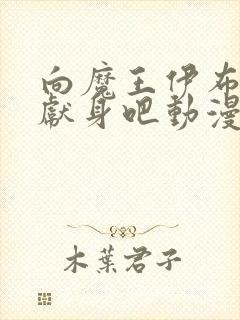 向魔王伊布
獻身吧動漫
木葉君子